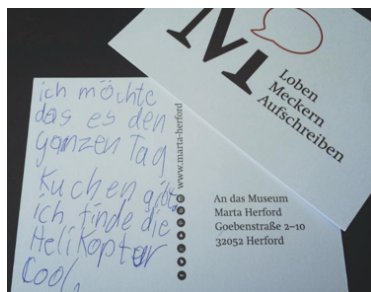 M
Loben
Meckern
Aufschreiben
ich möchte
das es den
ganzen Tag
Kuchen gibt
ich finde die
Helikopter
Cool
www.marta-herford
An das Museum
Marta Herford
Goebenstraße 2–10
32052 Herford